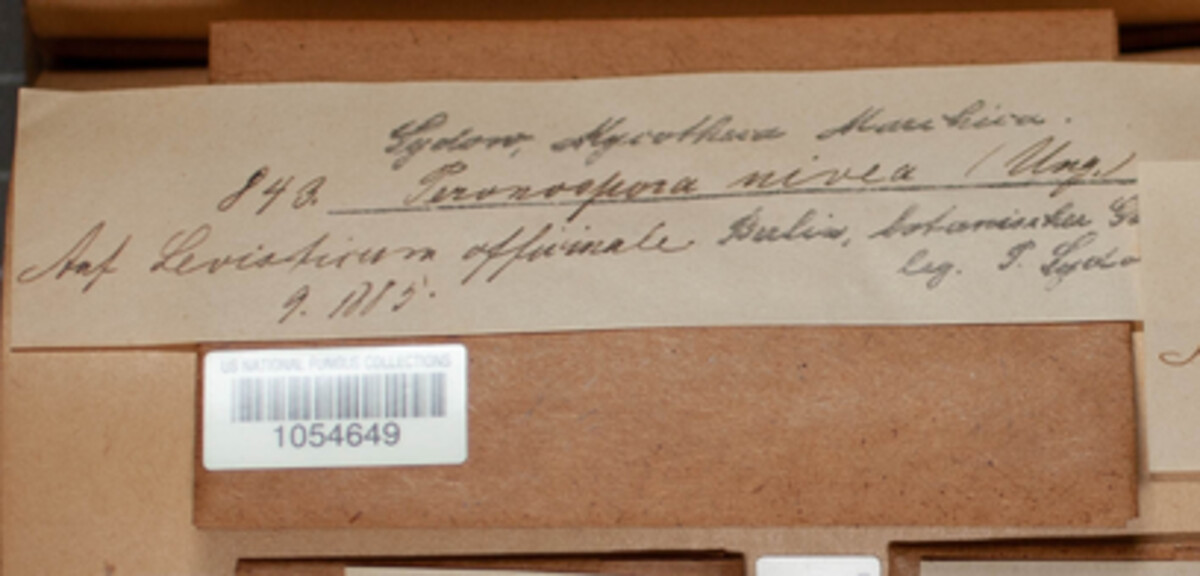 Sydow, Mycotheca Marchica.
843. Peronospora nivea (Ung.)
Auf Levisticum officinale Berlin, botanischer
9. 1885. leg. P. Sydo
US NATIONAL FUNGUS COLLECTIONS
1054649